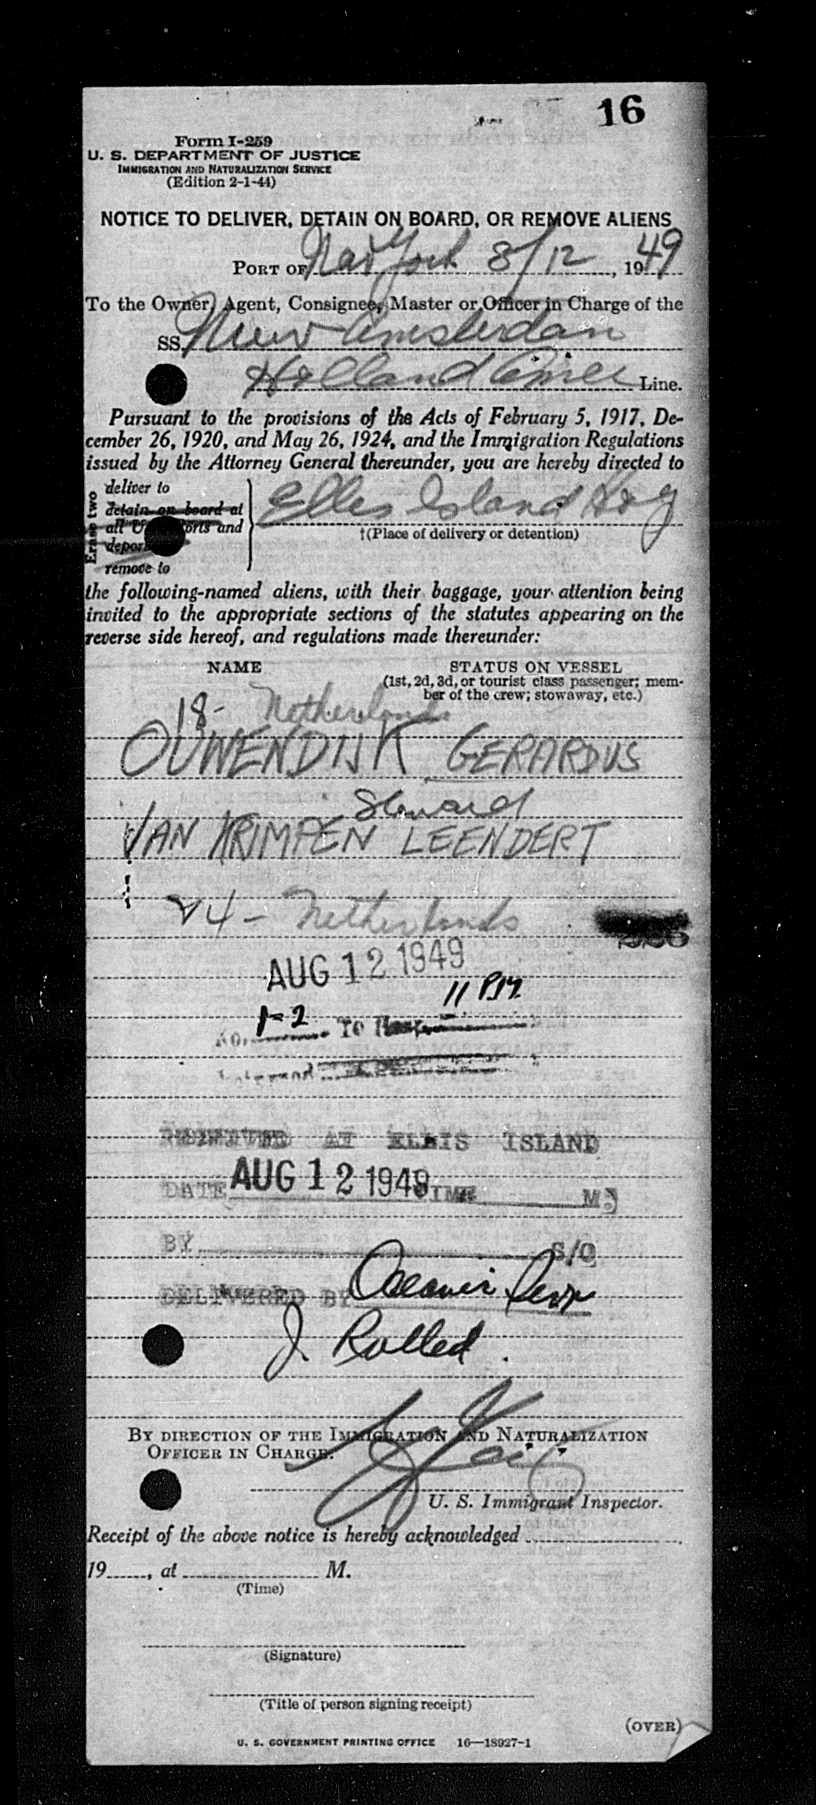 16
Form I-259
U. S. DEPARTMENT OF JUSTICE
IMMIGRATION AND NATURALIZATION SERVICE
(Edition 2-1-44)
NOTICE TO DELIVER, DETAIN ON BOARD, OR REMOVE ALIENS
PORT OF New York 8/12, 1949
To the Owner, Agent, Consignee, Master or Officer in Charge of the
SS. New Amsterdam
Holland Amer Line.
Pursuant to the provisions of the Acts of February 5, 1917, De-
cember 26, 1920, and May 26, 1924, and the Immigration Regulations
issued by the Attorney General thereunder, you are hereby directed to
Erase two
deliver to
detain on board at
all U. ports and
deport
remove to
Ellis Island
†(Place of delivery or detention)
the following-named aliens, with their baggage, your attention being
invited to the appropriate sections of the statutes appearing on the
reverse side hereof, and regulations made thereunder:
NAME STATUS ON VESSEL
(1st, 2d, 3d, or tourist class passenger; mem-
ber of the crew; stowaway, etc.)
18- Netherlands
OUWENDIJK GERARDUS
Steward
VAN KRIMPEN LEENDERT
24- Netherlands
AUG 12 1949
11 PM
No. 1-2 To
RECEIVED AT ELLIS ISLAND
DATE AUG 12 1949 TIME M.
BY S/O
DELIVERED BY
J.
BY DIRECTION OF THE IMMIGRATION AND NATURALIZATION
OFFICER IN CHARGE.
U. S. Immigrant Inspector.
Receipt of the above notice is hereby acknowledged
19, at M.
(Time)
(Signature)
(Title of person signing receipt)
(OVER)
U. S. GOVERNMENT PRINTING OFFICE 16—18927-1